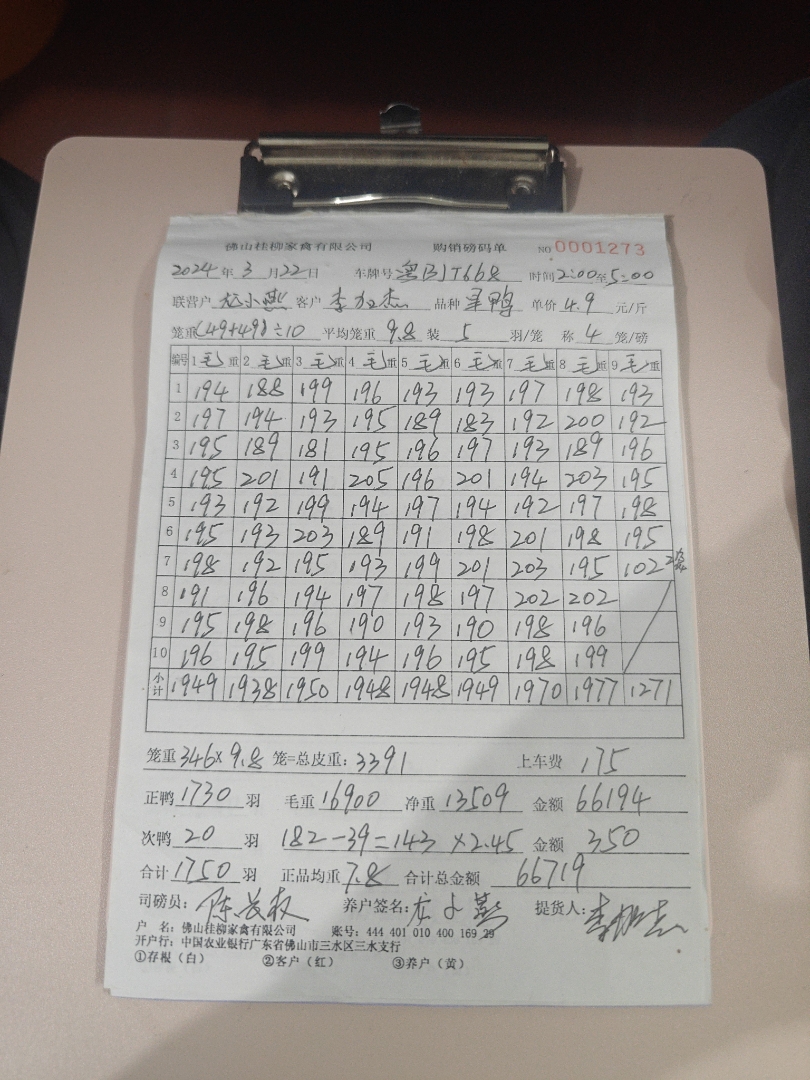 佛山桂柳家禽有限公司 购销磅码单 NO 0001273
2024年3月22日 车牌号 粤 JT668 时间2:00至5:00
联营户 小燕 客户 李 杰 品种 鸭 单价 4.9 元/斤
笼重(49+49)÷10 平均笼重 9.8 装 5 羽/笼 称 4 笼/磅
编号 1 毛重 2 毛重 3 毛重 4 毛重 5 毛重 6 毛重 7 毛重 8 毛重 9 毛重
1 194 188 199 196 193 193 197 198 193
2 197 194 193 195 189 183 192 200 192
3 195 189 181 195 196 197 193 189 196
4 195 201 191 205 196 201 194 203 195
5 193 192 199 194 197 194 192 197 198
6 195 193 203 189 191 198 201 198 195
7 198 192 195 193 199 201 203 195 102 2
8 191 196 194 197 198 197 202 202
9 195 198 196 190 193 190 198 196
10 196 195 199 194 196 195 198 199
小计 1949 1938 1950 1948 1948 1949 1970 1977 1271
笼重346×9.8 笼=总皮重:3391 上车费 175
正鸭1730羽 毛重16900 净重13509 金额66194
次鸭 20 羽 182-39=143 ×2.45 金额 350
合计1750羽 正品均重7.8 合计总金额 66719
司磅员: 陈 权 养户签名: 小燕 提货人: 李 杰
户 名: 佛山桂柳家禽有限公司 账号: 444 401 010 400 169 29
开户行: 中国农业银行广东省佛山市三水区三水支行
①存根(白) ②客户(红) ③养户(黄)